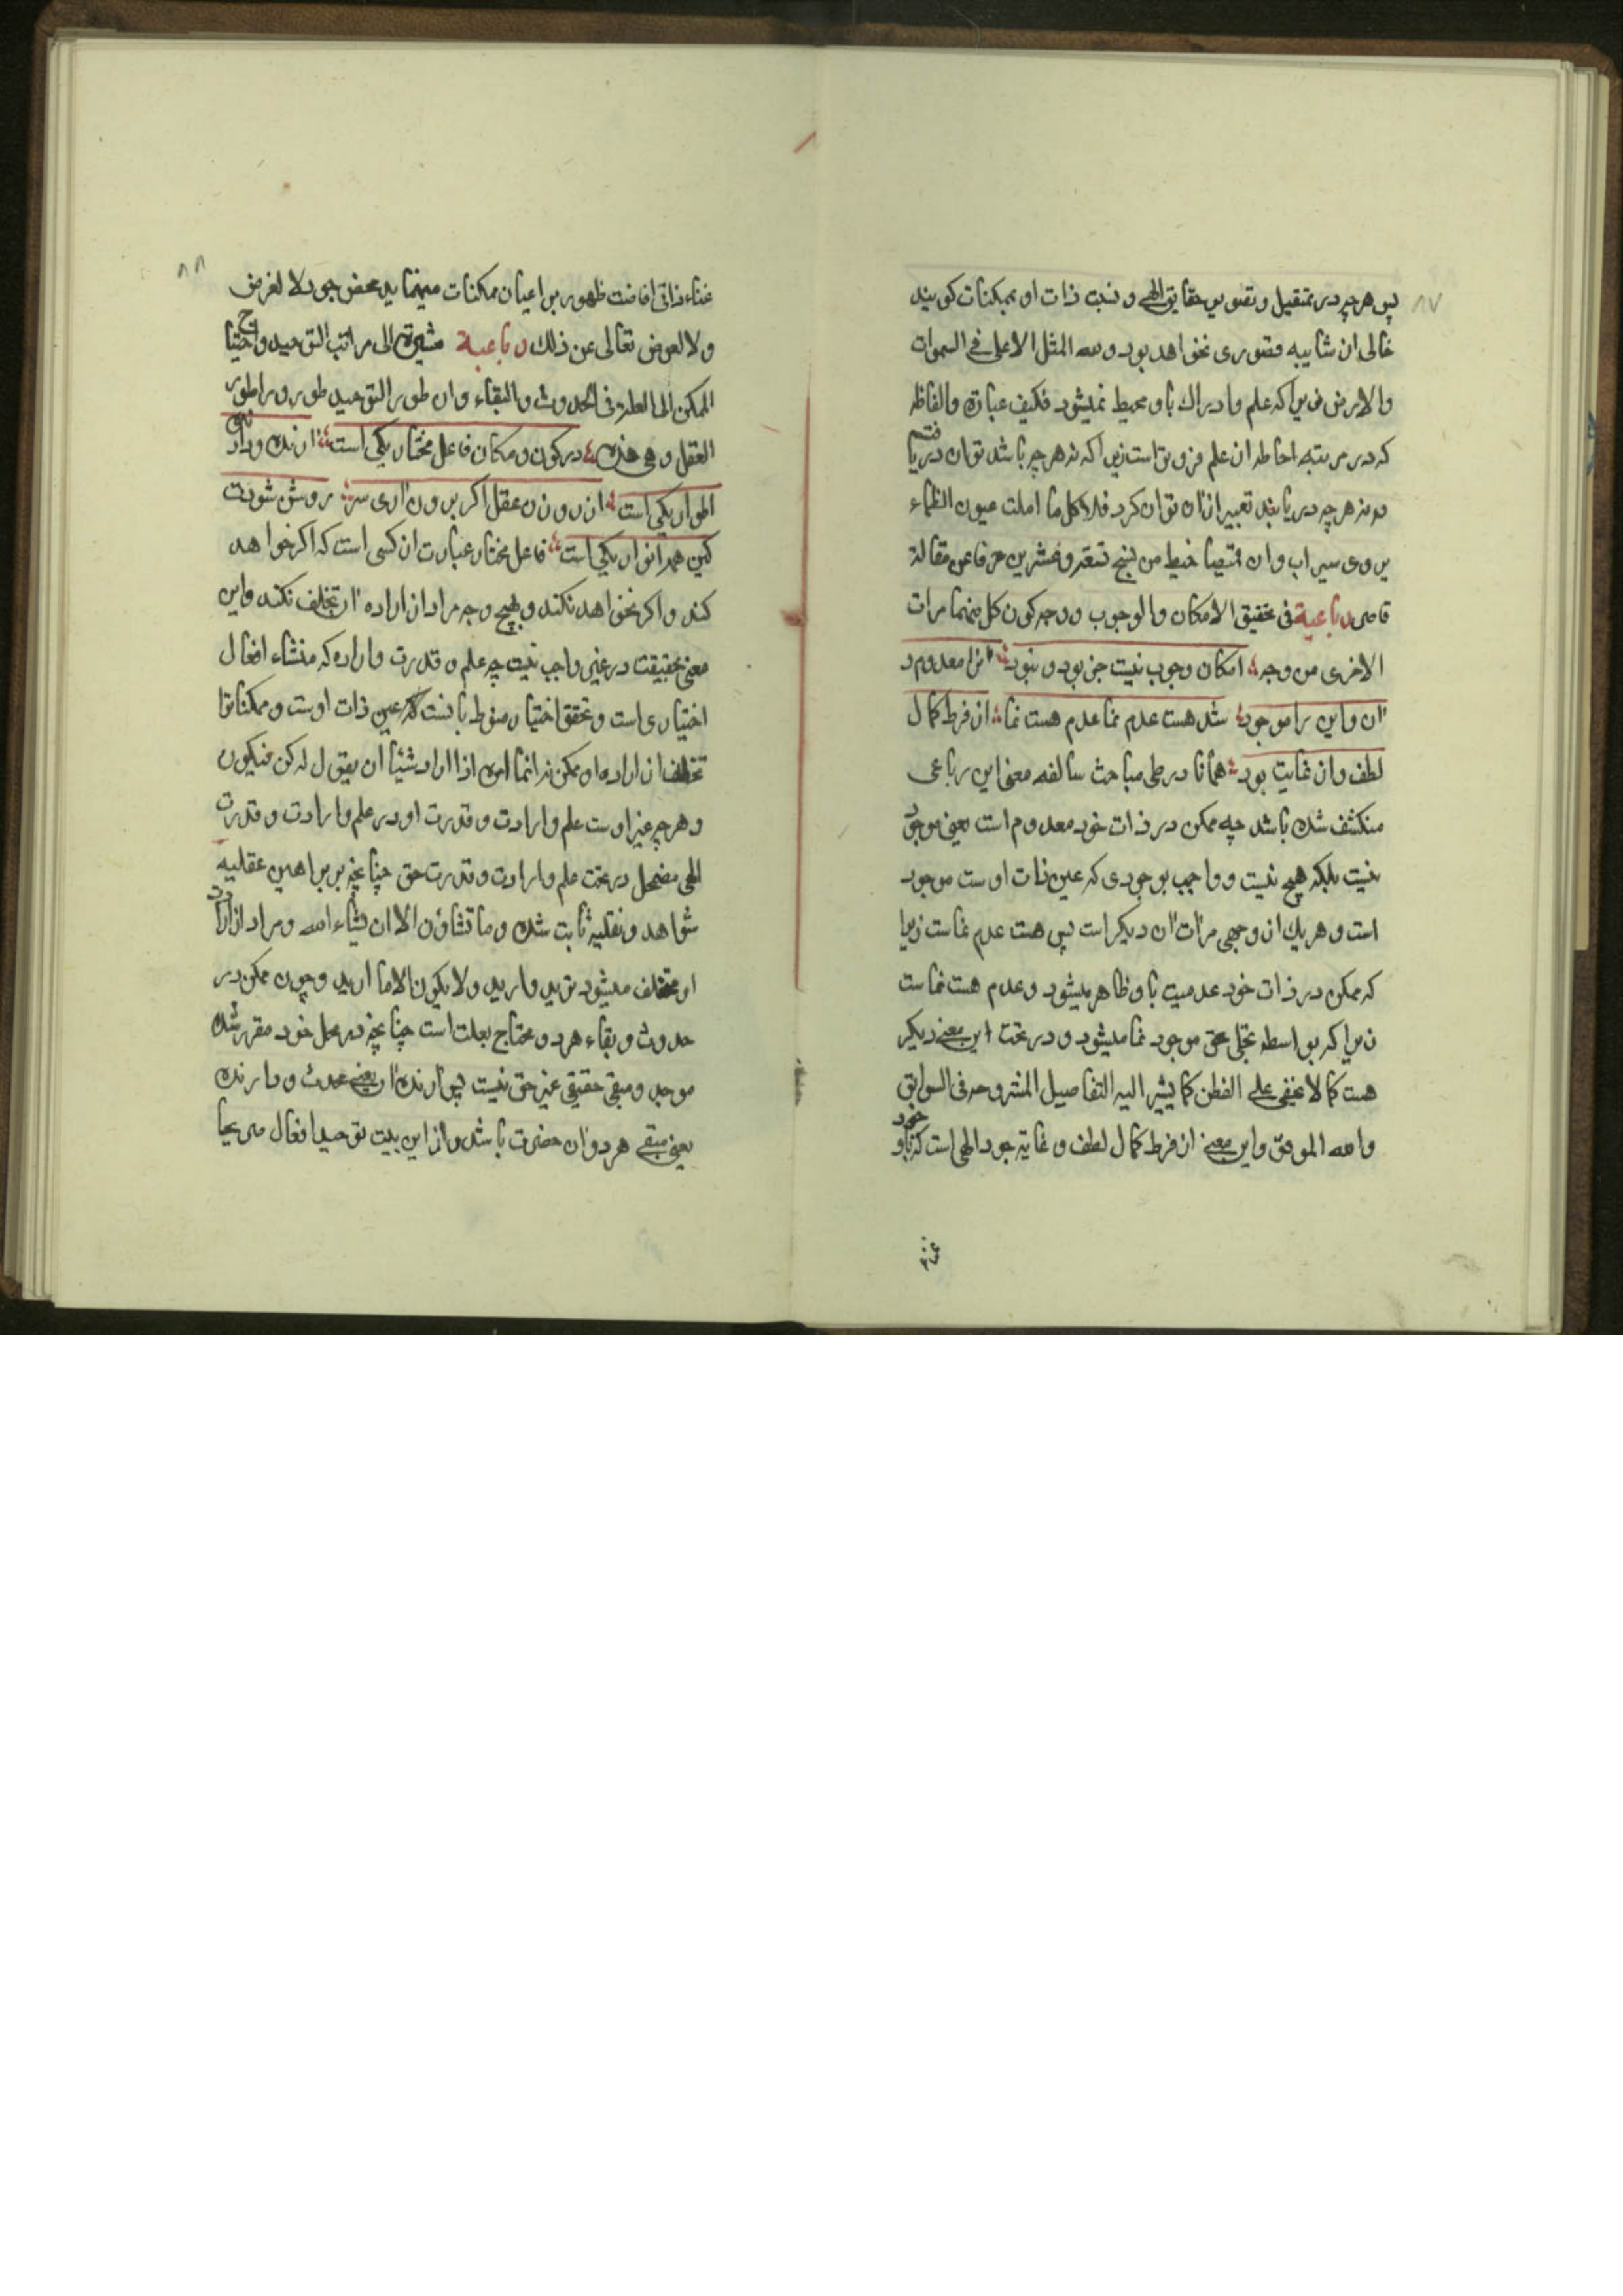 ٨٧
پس هرچه در تمثیل و تصویر حقایق الهی و نسبت ذات او بممکنات کویند
خالی از شایبه قصوری نخواهد بود و لله المثل الاعلی فی السموات
والارض زیرا که علم و ادراک باو محیط نمیشود فکیف عبارة والفاظه
که در مرتبه احاطه از علم فروتر است زیرا که نه هرچه باشد توان دریافتن
و نه هرچه دریابند تعبیر از ان توان کرد فلا کل ما املت عیون الظماء
یروی سیراب وان قمیصا خیط من نسج تسعة وعشرین حرفا عن مقالة
قاصر رباعیة فی تحقیق الامکان والوجوب ووجه کون کل منهما مرات
الاخری من وجه امکان وجوب نیست جز بود و نبود انرا معدوم د
ان واین را موجود شد هست عدم نما عدم هست نما از فرط کمال
لطف وان غایت بود همانا در طی مباحث سالفه معنی این رباعی
منکشف شده باشد چه ممکن در ذات خود معدوم است یعنی موجود
نیست بلکه هیچ نیست و واجب بوجودی که عین ذات اوست موجود
است و هر یک از وجهی مرات ان دیکر است پس هست عدم نماست زیرا
که ممکن در ذات خود عدمیت باو ظاهر میشود و عدم هست نماست
زیرا که بواسطه تجلی حق موجود نما میشود و در تحت این معنی دیکر
هست کما لا یخفی علی الفطن کما یشیر الیه التفاصیل المشروحه فی السوابق
والله الموفق واین معنی از فرط کمال لطف و غایة جود الهی است که باوجود
غنا
٨٨
غناء ذاتی افاضت ظهور بر اعیان ممکنات مینماید محض جود لا لغرض
ولا لعوض تعالی عن ذلک رباعیة مشیرة الی مراتب التوحید واحتیاج
الممکن الی العلة فی الحدوث والبقاء وان طور التوحید طور وراء طور
العقل وهی هذه در کون و مکان فاعل مختار یکی است ارنده و دارنده
اطوار یکی است از روزن عقل اکر برون اری سر روشن شودت
کین همه انوار یکی است فاعل مختار عبارت از کسی است که اکر خواهد
کند و اکر نخواهد نکند و بهیچ وجه مراد از اراده او تخلف نکند واین
معنی بحقیقت در غیر واجب نیست چه علم و قدرت و اراده که منشاء افعال
اختیاری است و تحقق اختیار منوط بانست که عین ذات اوست و ممکنات را
تخلف از اراده او ممکن نه انما امره اذا اراد شیئا ان یقول له کن فیکون
و هرچه غیر اوست علم و ارادت و قدرت او در علم و ارادت و قدرت
الهی مضمحل در تحت علم و ارادت و قدرت حق چنانچه بر براهین عقلیه
شواهد و نقلیه ثابت شده و ما تشاؤن الا ان یشاء الله و مراد از ارادت
او مختلف میشود ترید و ارید ولا یکون الا ما ارید و چون ممکن در
حدوث و بقاء هر دو محتاج بعلت است چنانچه در محل خود مقرر شده
موجد و مبقی حقیقی غیر حق نیست پس ارنده ان یعنی محدث و دارنده
یعنی مبقی هر دو ان حضرت باشد و از این بیت توحید افعال صریحا